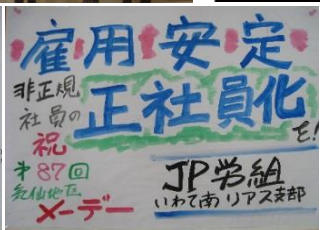 雇用安定
非正規
社員の
正社員化
を!
祝
第87回
気仙地区
メーデー
JP労組
いわて南リアス支部